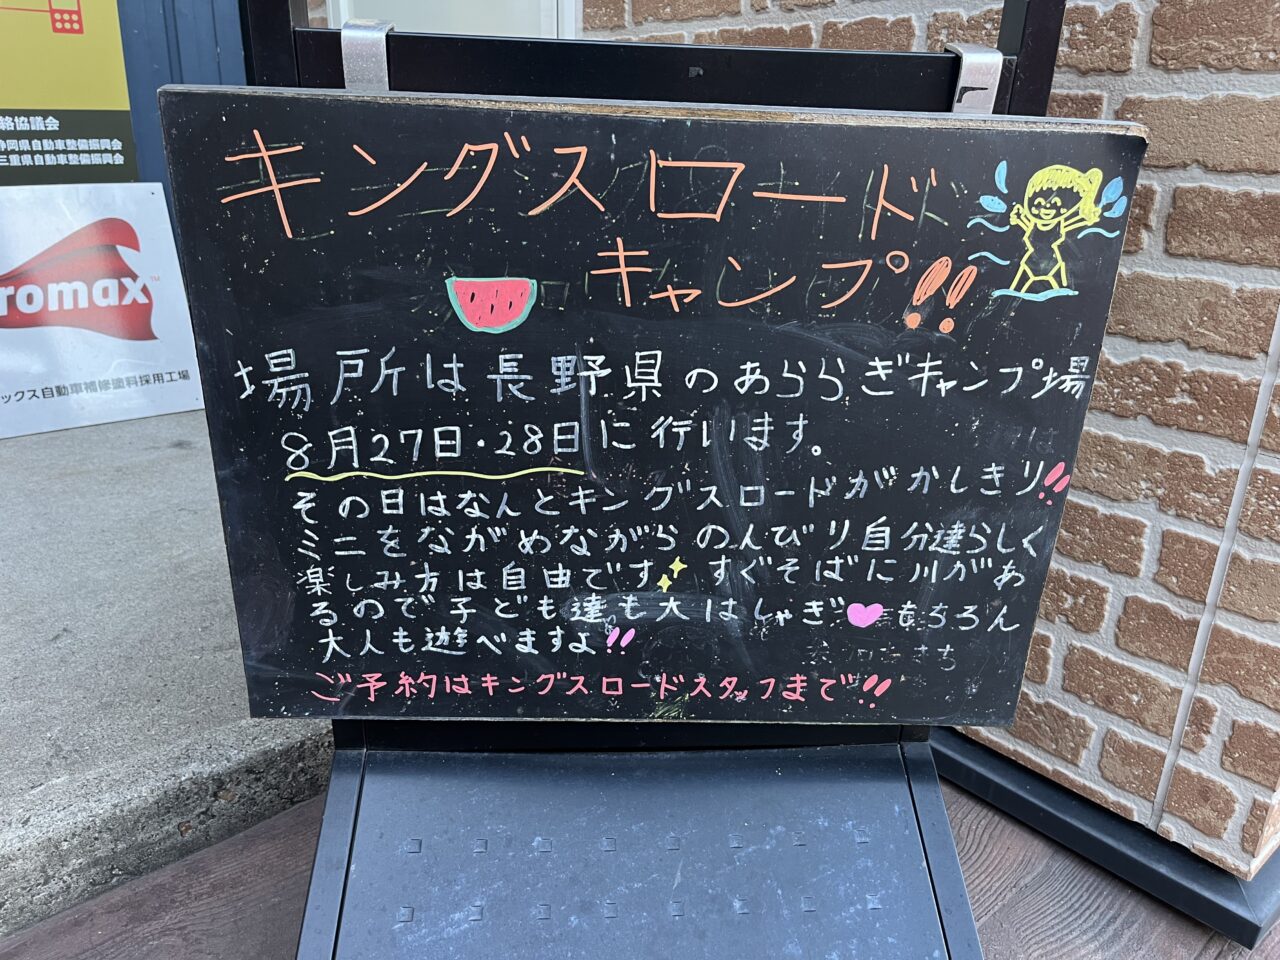 絡協議会
静岡県自動車整備振興会
三重県自動車整備振興会
romax
ックス自動車補修塗料採用工場
キングスロード
キャンプ!!
場所は長野県のあららぎキャンプ場
8月27日・28日に行います。
その日はなんとキングスロードがかしきり!!
ミニをながめながらのんびり自分達らしく
楽しみ方は自由です すぐそばに川があ
るので子ども達も大はしゃぎ もちろん
大人も遊べますよ!!
ご予約はキングスロードスタッフまで!!